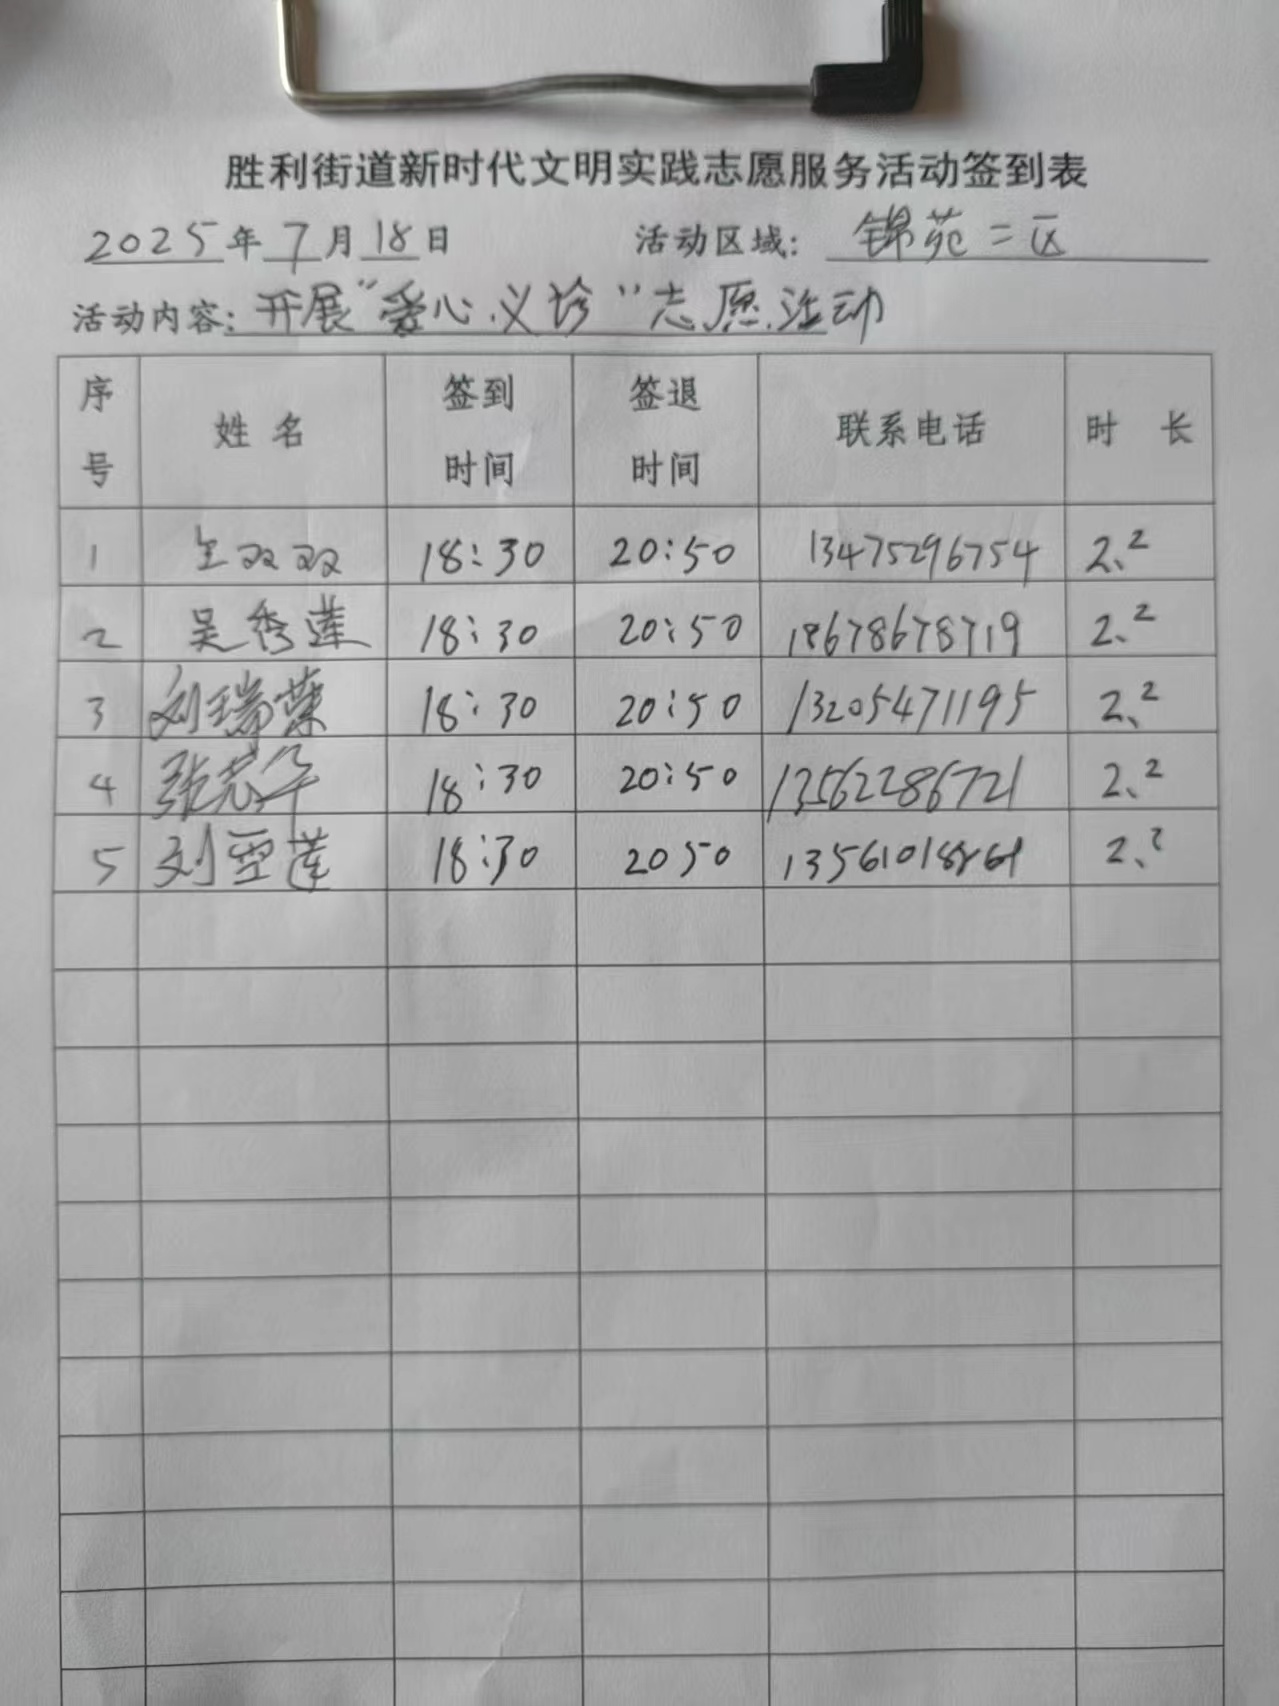 胜利街道新时代文明实践志愿服务活动签到表
2025年7月18日 活动区域：锦苑二区
活动内容：开展“爱心义诊”志愿活动
序号 姓名 签到时间 签退时间 联系电话 时长
1 王双双 18:30 20:50 13475296754 2.2
2 吴秀莲 18:30 20:50 18678678719 2.2
3 刘瑞叶 18:30 20:50 13205471195 2.2
4 张 18:30 20:50 13562286721 2.2
5 刘雪莲 18:30 20 50 2.2